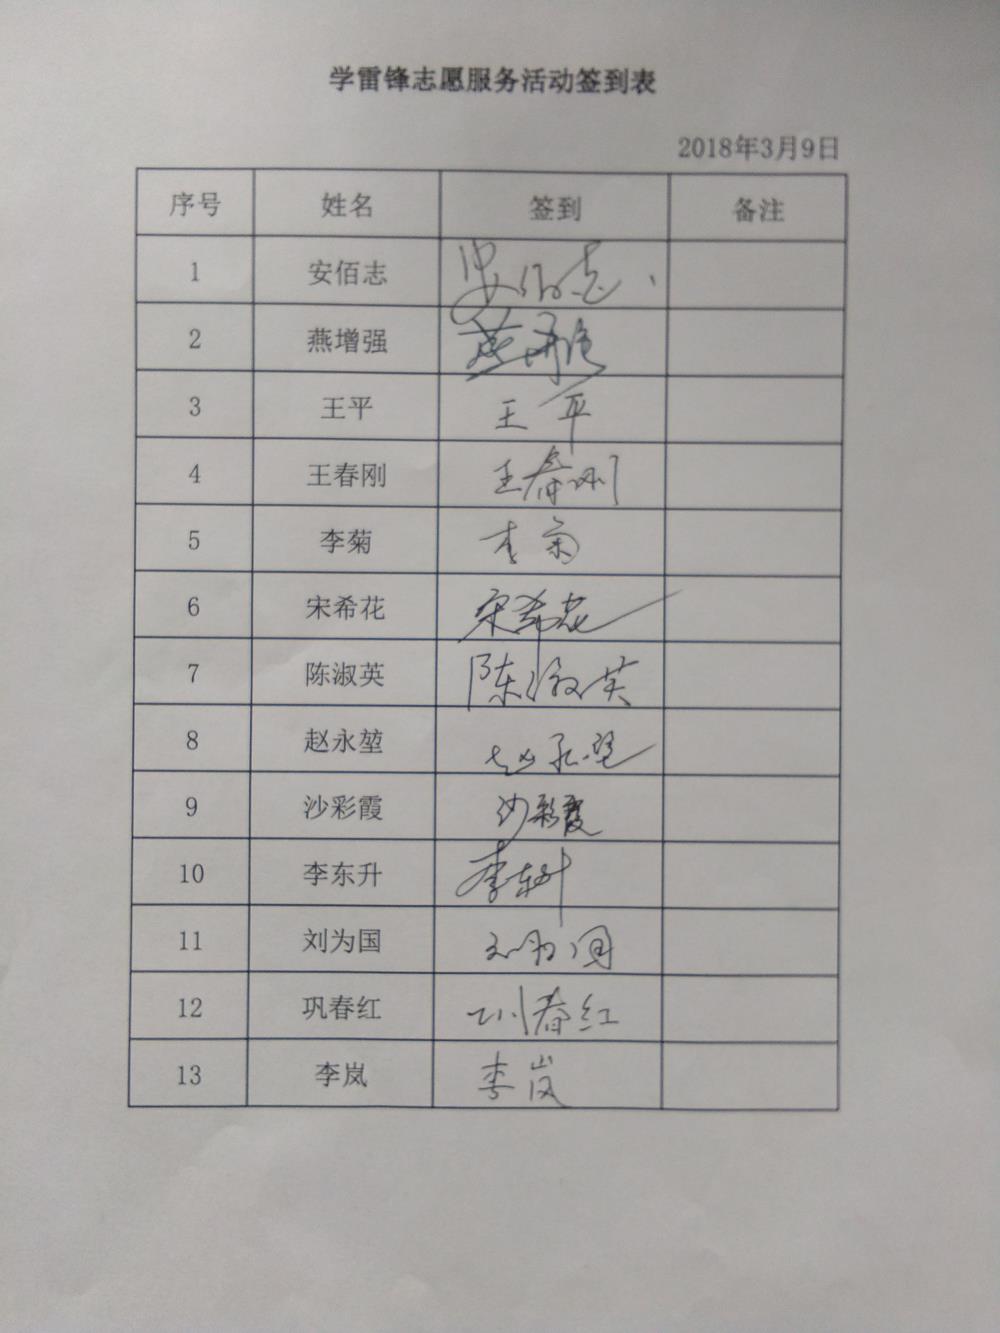 学雷锋志愿服务活动签到表
2018年3月9日
序号 姓名 签到 备注
1 安佰志 安佰志
2 燕增强 燕增强
3 王平 王平
4 王春刚 王春刚
5 李菊 李菊
6 宋希花 宋希花
7 陈淑英 陈淑英
8 赵永堃 赵永堃
9 沙彩霞 沙彩霞
10 李东升 李东升
11 刘为国 刘为国
12 巩春红 巩春红
13 李岚 李岚